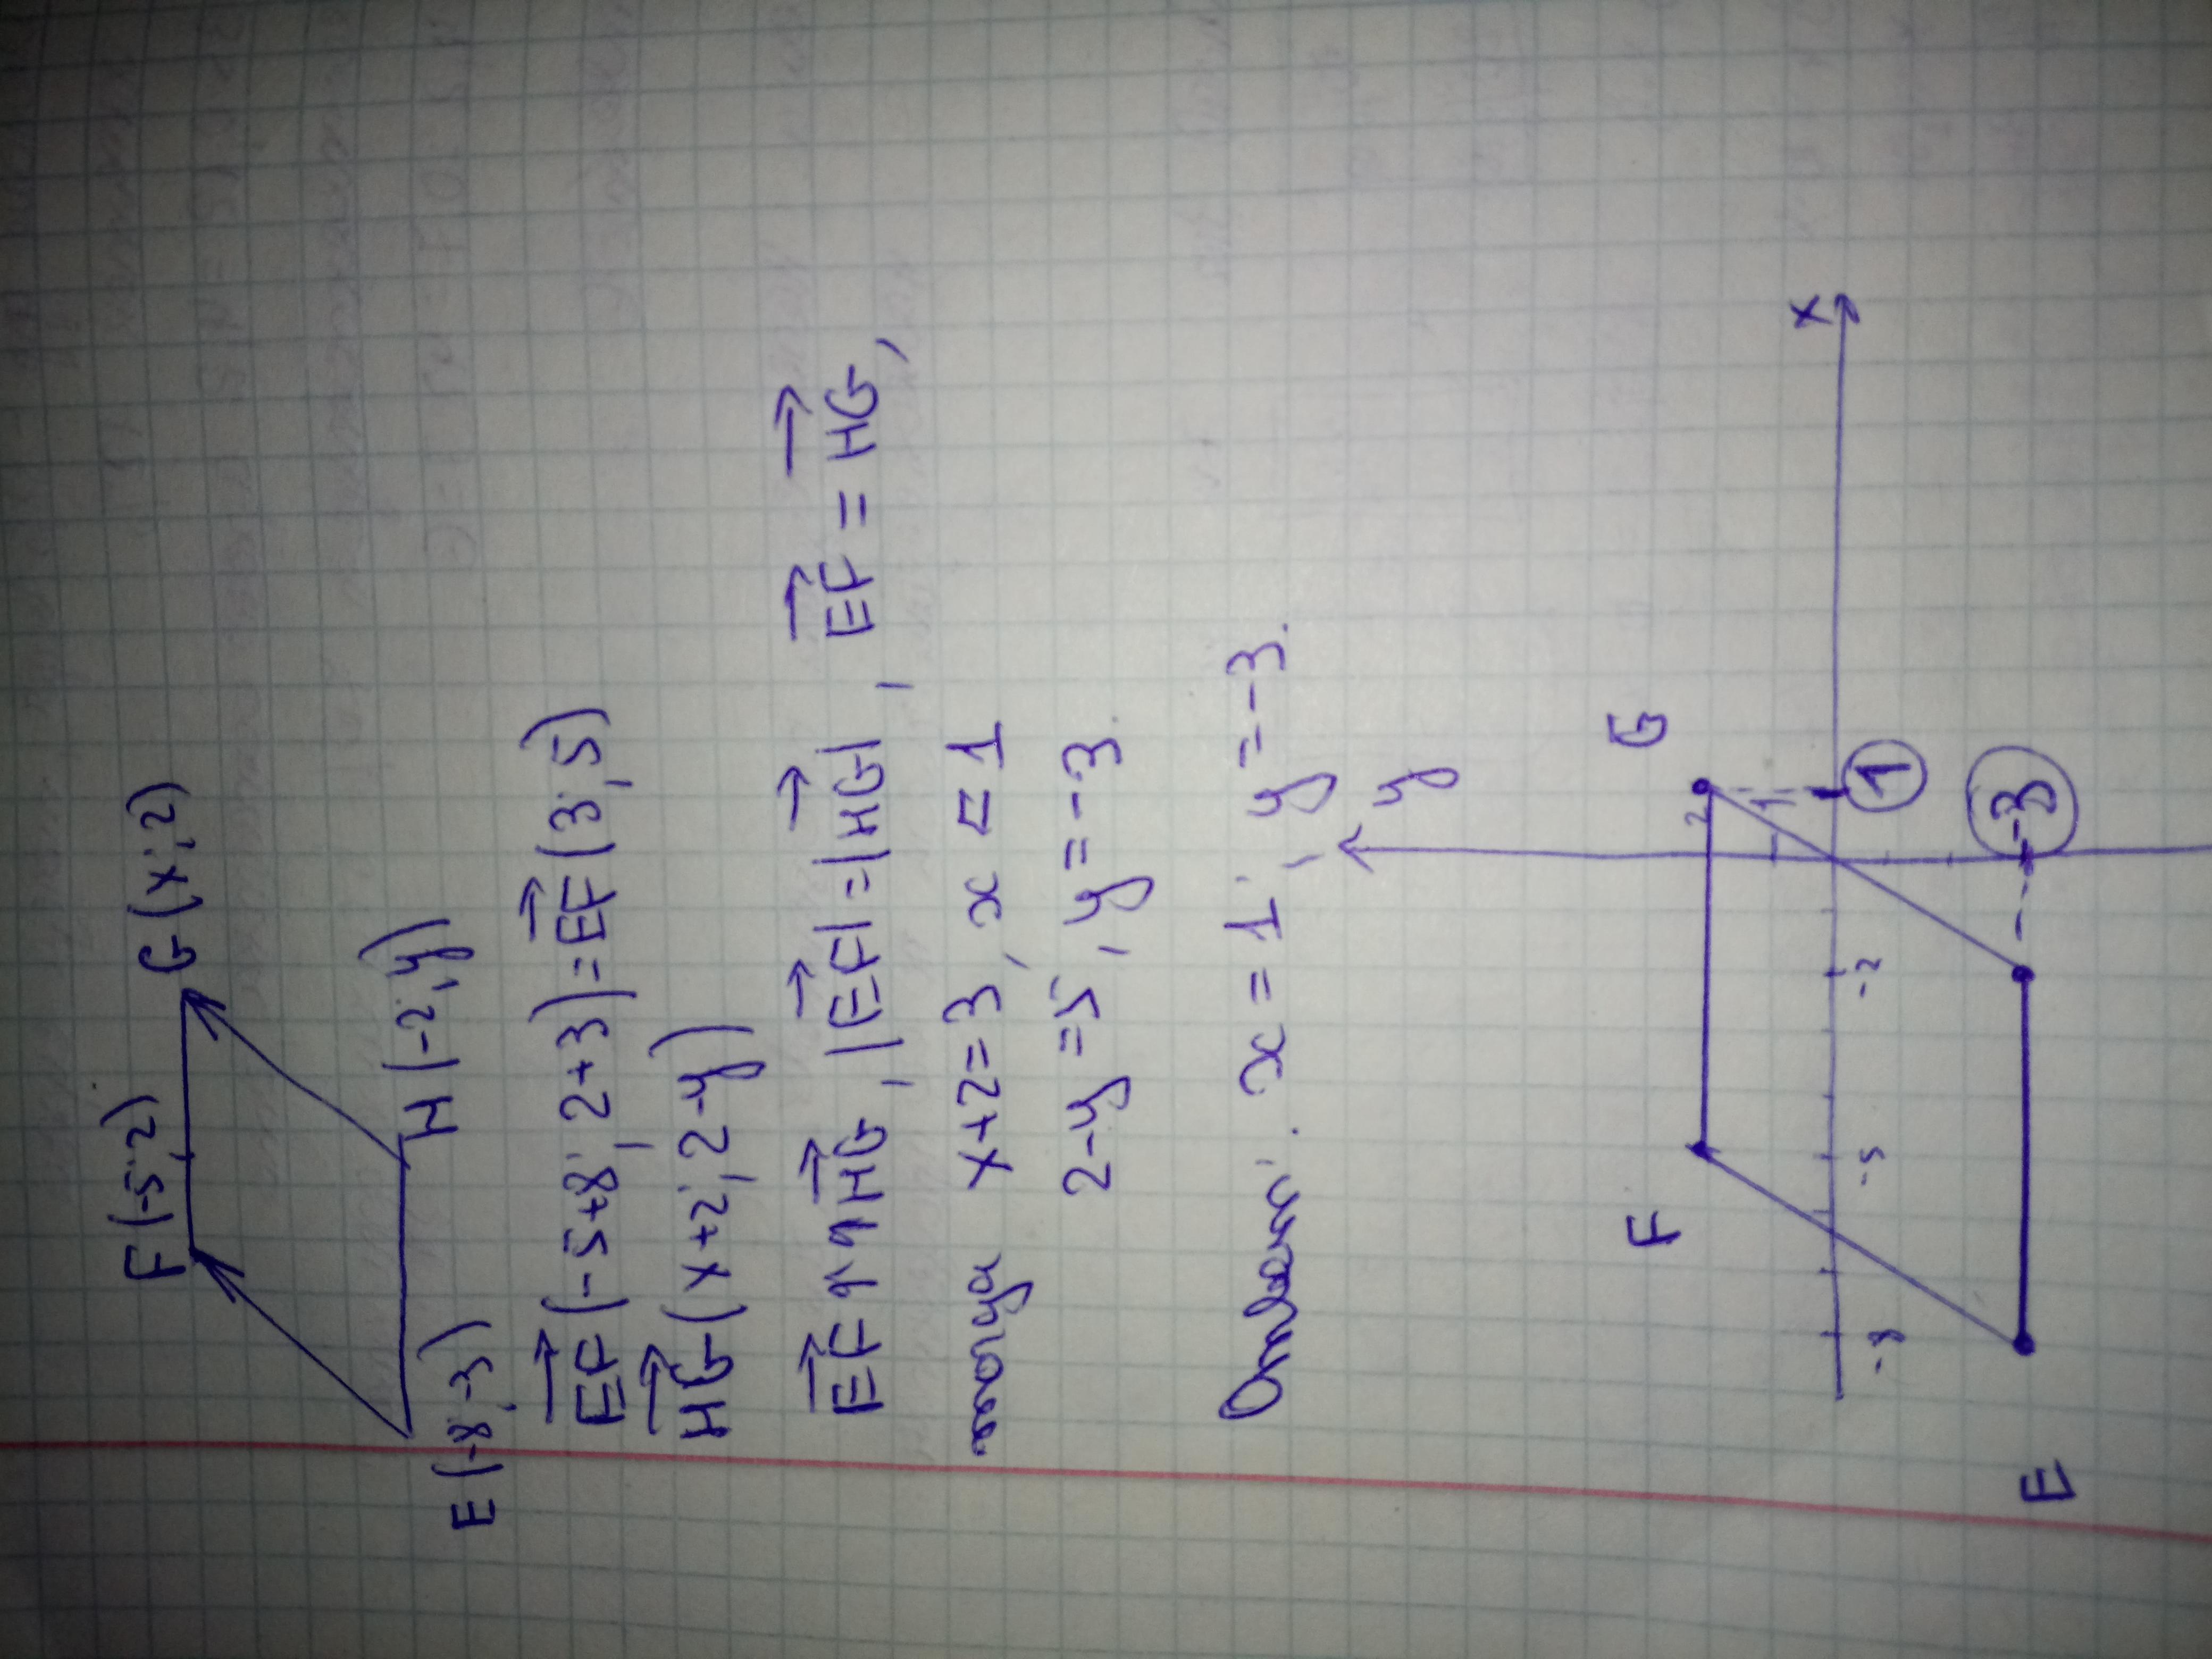 F(-5; 2) G(x; 2)
E(-8;-3) H(-2; y)
EF(-5+8; 2+3)=EF(3; 5)
HG(x+2; 2-y)
EF↑↑HG, |EF|=|HG|, EF = HG,
тогда x+2=3, x = 1
2-y =5, y=-3
Ответ: x=1; y=-3.
y
F G
2
1
x
-8 -5 -2 1
-3
E